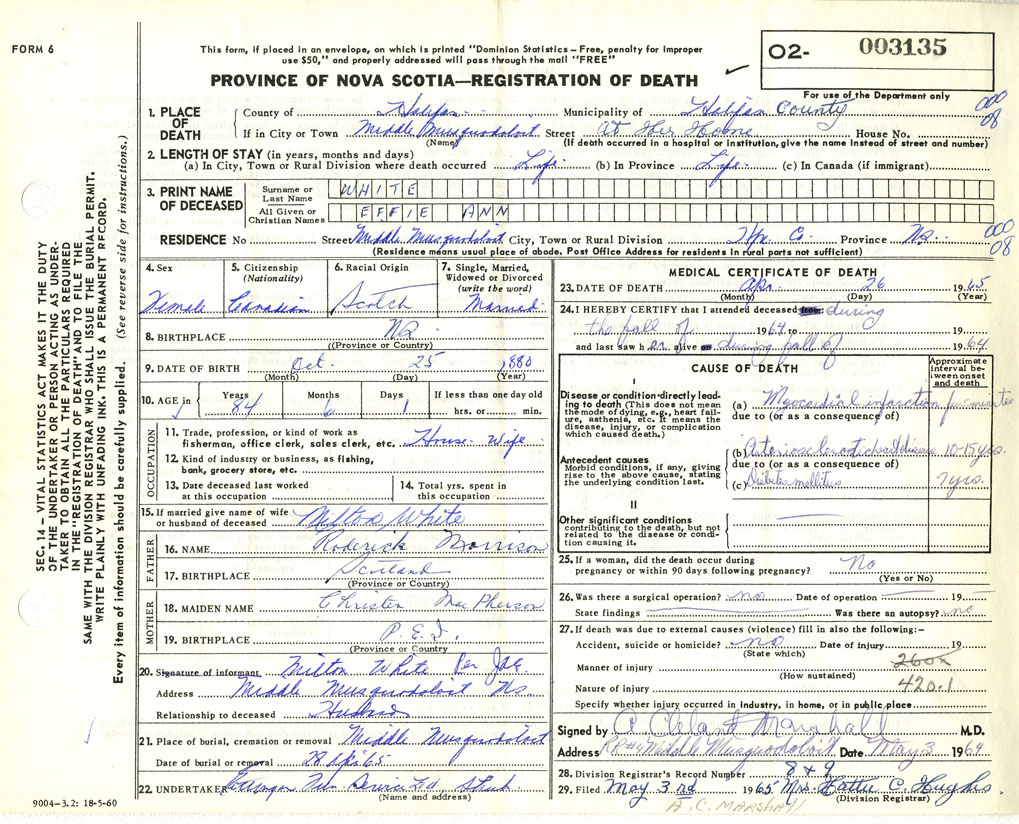 FORM 6
This form, if placed in an envelope, on which is printed "Dominion Statistics – Free, penalty for improper
use $50," and properly addressed will pass through the mail "FREE"
PROVINCE OF NOVA SCOTIA—REGISTRATION OF DEATH
O2- 003135
For use of the Department only
000
08
1. PLACE OF DEATH
County of Halifax Municipality of Halifax County
If in City or Town Middle Musquodoboit Street At Her Home House No.
(Name) (If death occurred in a hospital or institution, give the name instead of street and number)
2. LENGTH OF STAY (in years, months and days)
(a) In City, Town or Rural Division where death occurred Life (b) In Province Life (c) In Canada (if immigrant)
3. PRINT NAME OF DECEASED
Surname or Last Name WHITE
All Given or Christian Names EFFIE ANN
RESIDENCE No Street Middle Musquodoboit City, Town or Rural Division Hfx. Co. Province NS.
(Residence means usual place of abode. Post Office Address for residents in rural parts not sufficient)
000
08
4. Sex
Female
5. Citizenship
(Nationality)
Canadian
6. Racial Origin
Scotch
7. Single, Married,
Widowed or Divorced
(write the word)
Married.
8. BIRTHPLACE NS
(Province or Country)
9. DATE OF BIRTH Oct. 25 1880
(Month) (Day) (Year)
10. AGE in Years Months Days If less than one day old
84 6 1 hrs. or min.
OCCUPATION
11. Trade, profession, or kind of work as
fisherman, office clerk, sales clerk, etc. House Wife
12. Kind of industry or business, as fishing,
bank, grocery store, etc.
13. Date deceased last worked
at this occupation
14. Total yrs. spent in
this occupation
15. If married give name of wife
or husband of deceased Milton White
FATHER
16. NAME Roderick Morrison
17. BIRTHPLACE Scotland
(Province or Country)
MOTHER
18. MAIDEN NAME Christen MacPherson
19. BIRTHPLACE P.E.I.
(Province or Country
20. Signature of informant Milton White Per
Address Middle Musquodoboit Ns.
Relationship to deceased Husband
21. Place of burial, cremation or removal Middle Musquodoboit
Date of burial or removal 28 Apr 65
22. UNDERTAKER Fun Service Ltd
(Name and address)
9004–3.2: 18-5-60
MEDICAL CERTIFICATE OF DEATH
23. DATE OF DEATH Apr. 26 1965
(Month) (Day) (Year)
24. I HEREBY CERTIFY that I attended deceased from: during
the fall of 1964 to 19
and last saw her alive on during fall of 1964
CAUSE OF DEATH
Approximate
interval be-
tween onset
and death
I
Disease or condition directly lead-
ing to death (This does not mean
the mode of dying, e.g., heart fail-
ure, asthenia, etc. It means the
disease, injury, or complication
which caused death.)
(a) Myocardial infarction few minutes
due to (or as a consequence of)
Antecedent causes
Morbid conditions, if any, giving
rise to the above cause, stating
the underlying condition last.
(b) Arteriosclerotic heart disease 10-15 yrs.
due to (or as a consequence of)
(c) Diabetes mellitus 7 yrs.
II
Other significant conditions
contributing to the death, but not
related to the disease or condi-
tion causing it.
25. If a woman, did the death occur during
pregnancy or within 90 days following pregnancy? No
(Yes or No)
26. Was there a surgical operation? no Date of operation 19
State findings Was there an autopsy? no
27. If death was due to external causes (violence) fill in also the following:–
Accident, suicide or homicide? no Date of injury 19
(State which)
260x
Manner of injury
(How sustained)
420.1
Nature of injury
Specify whether injury occurred in industry, in home, or in public place
Signed by R Cleland Marshall M.D.
Address RR#4 Middle Musquodoboit Date May 3 1964
28. Division Registrar's Record Number 8 + 9
29. Filed May 3rd 1965 Mrs. Hattie C. Hughes
(Division Registrar)
A.C. MARSHALL
SEC. 14 – VITAL STATISTICS ACT MAKES IT THE DUTY
OF THE UNDERTAKER OR PERSON ACTING AS UNDER-
TAKER TO OBTAIN ALL THE PARTICULARS REQUIRED
IN THE "REGISTRATION OF DEATH" AND TO FILE THE
SAME WITH THE DIVISION REGISTRAR WHO SHALL ISSUE THE BURIAL PERMIT.
WRITE PLAINLY WITH UNFADING INK. THIS IS A PERMANENT RECORD.
Every item of information should be carefully supplied. (See reverse side for instructions.)